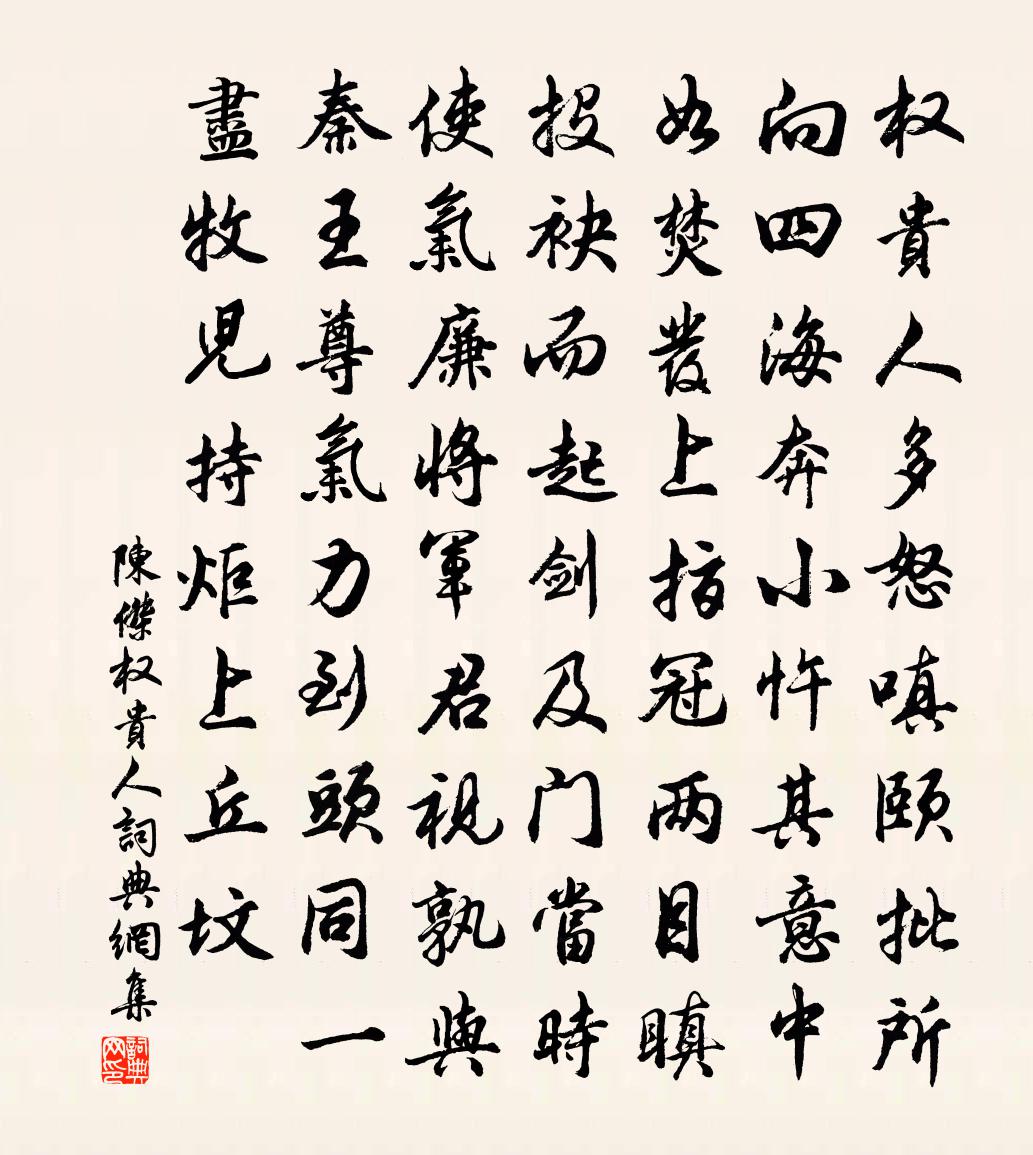 权貴人多怒嗔颐批所
向四海奔小忤其意中
如焚髮上指冠两目瞋
投袂而起剑及门當時
使氣廉將軍君視孰與
秦王尊氣力到頭同一
盡牧児持炬上丘坟
陳傑权貴人詞典網集
詞典网印